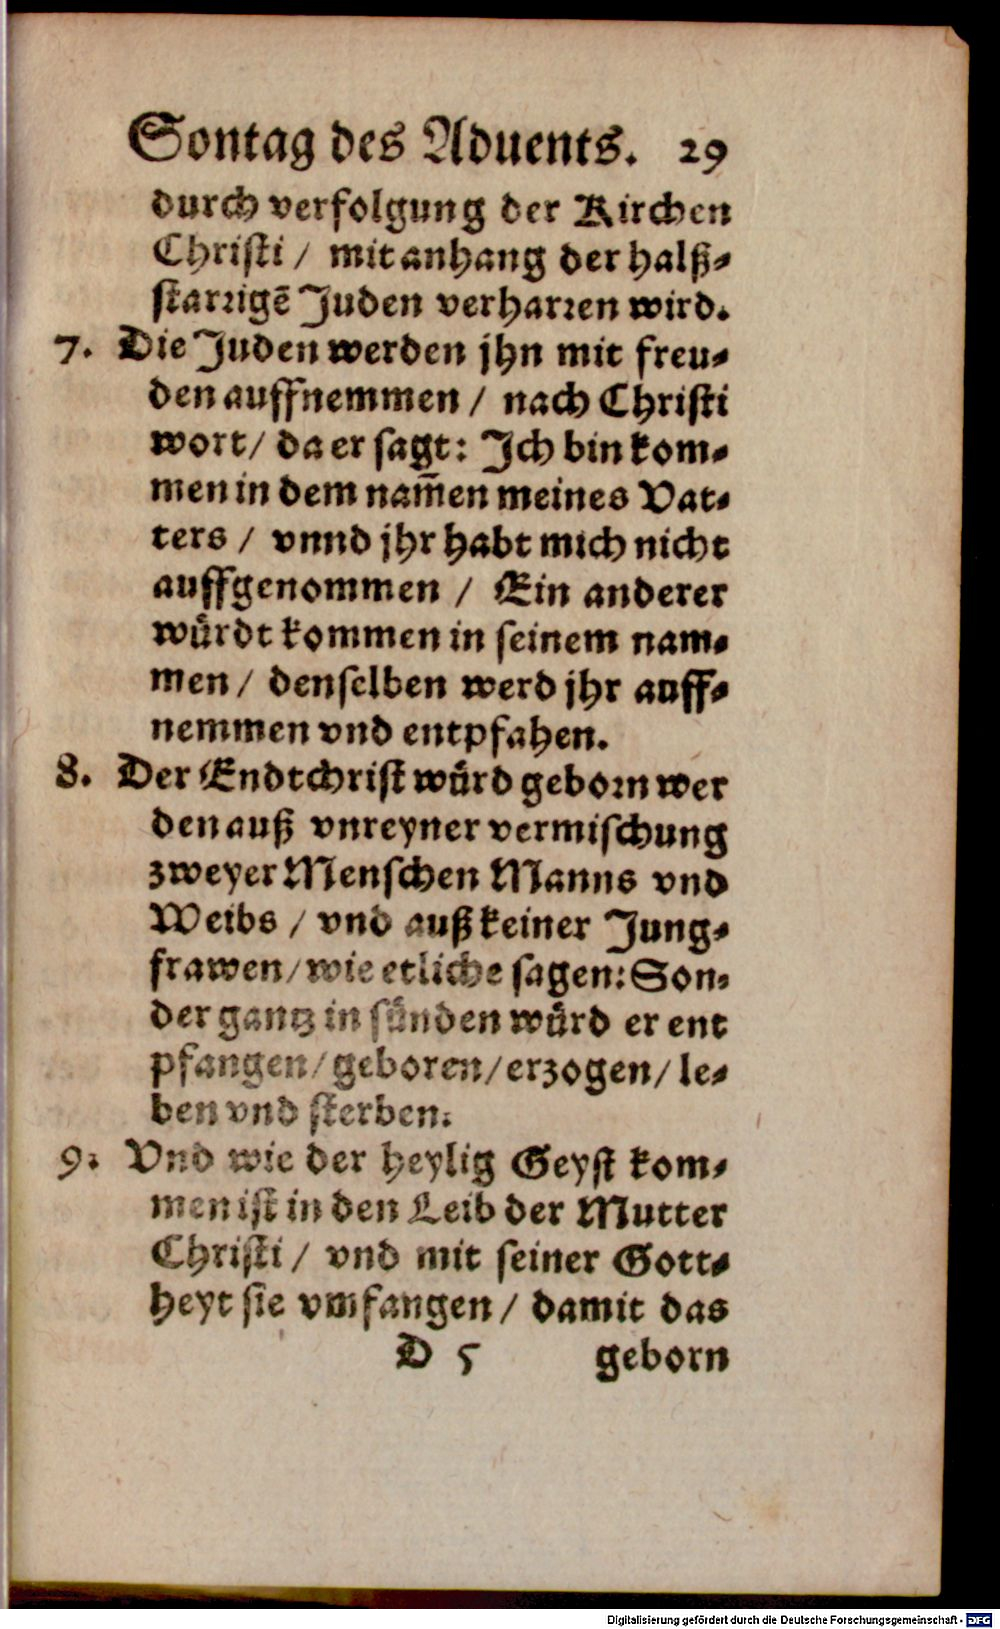 Sontag des Aduents. 29
durch verfolgung der Kirchen
Christi / mit anhang der halß-
starrigē Juden verharren wird.
7. Die Juden werden jhn mit freu-
den auffnemmen / nach Christi
wort / da er sagt: Ich bin kom-
men in dem nam̄en meines Vat-
ters / vnnd jhr habt mich nicht
auffgenommen / Ein anderer
würdt kommen in seinem nam-
men / denselben werd jhr auff-
nemmen vnd entpfahen.
8. Der Endtchrist würd geborn wer
den auß vnreyner vermischung
zweyer Menschen Manns vnd
Weibs / vnd auß keiner Jung-
frawen / wie etliche sagen: Son-
der gantz in sünden würd er ent
pfangen / geboren / erzogen / le-
ben vnd sterben.
9. Vnd wie der heylig Geyst kom-
men ist in den Leib der Mutter
Christi / vnd mit seiner Gott-
heyt sie vmfangen / damit das
D 5 geborn
Digitalisierung gefördert durch die Deutsche Forschungsgemeinschaft - DFG